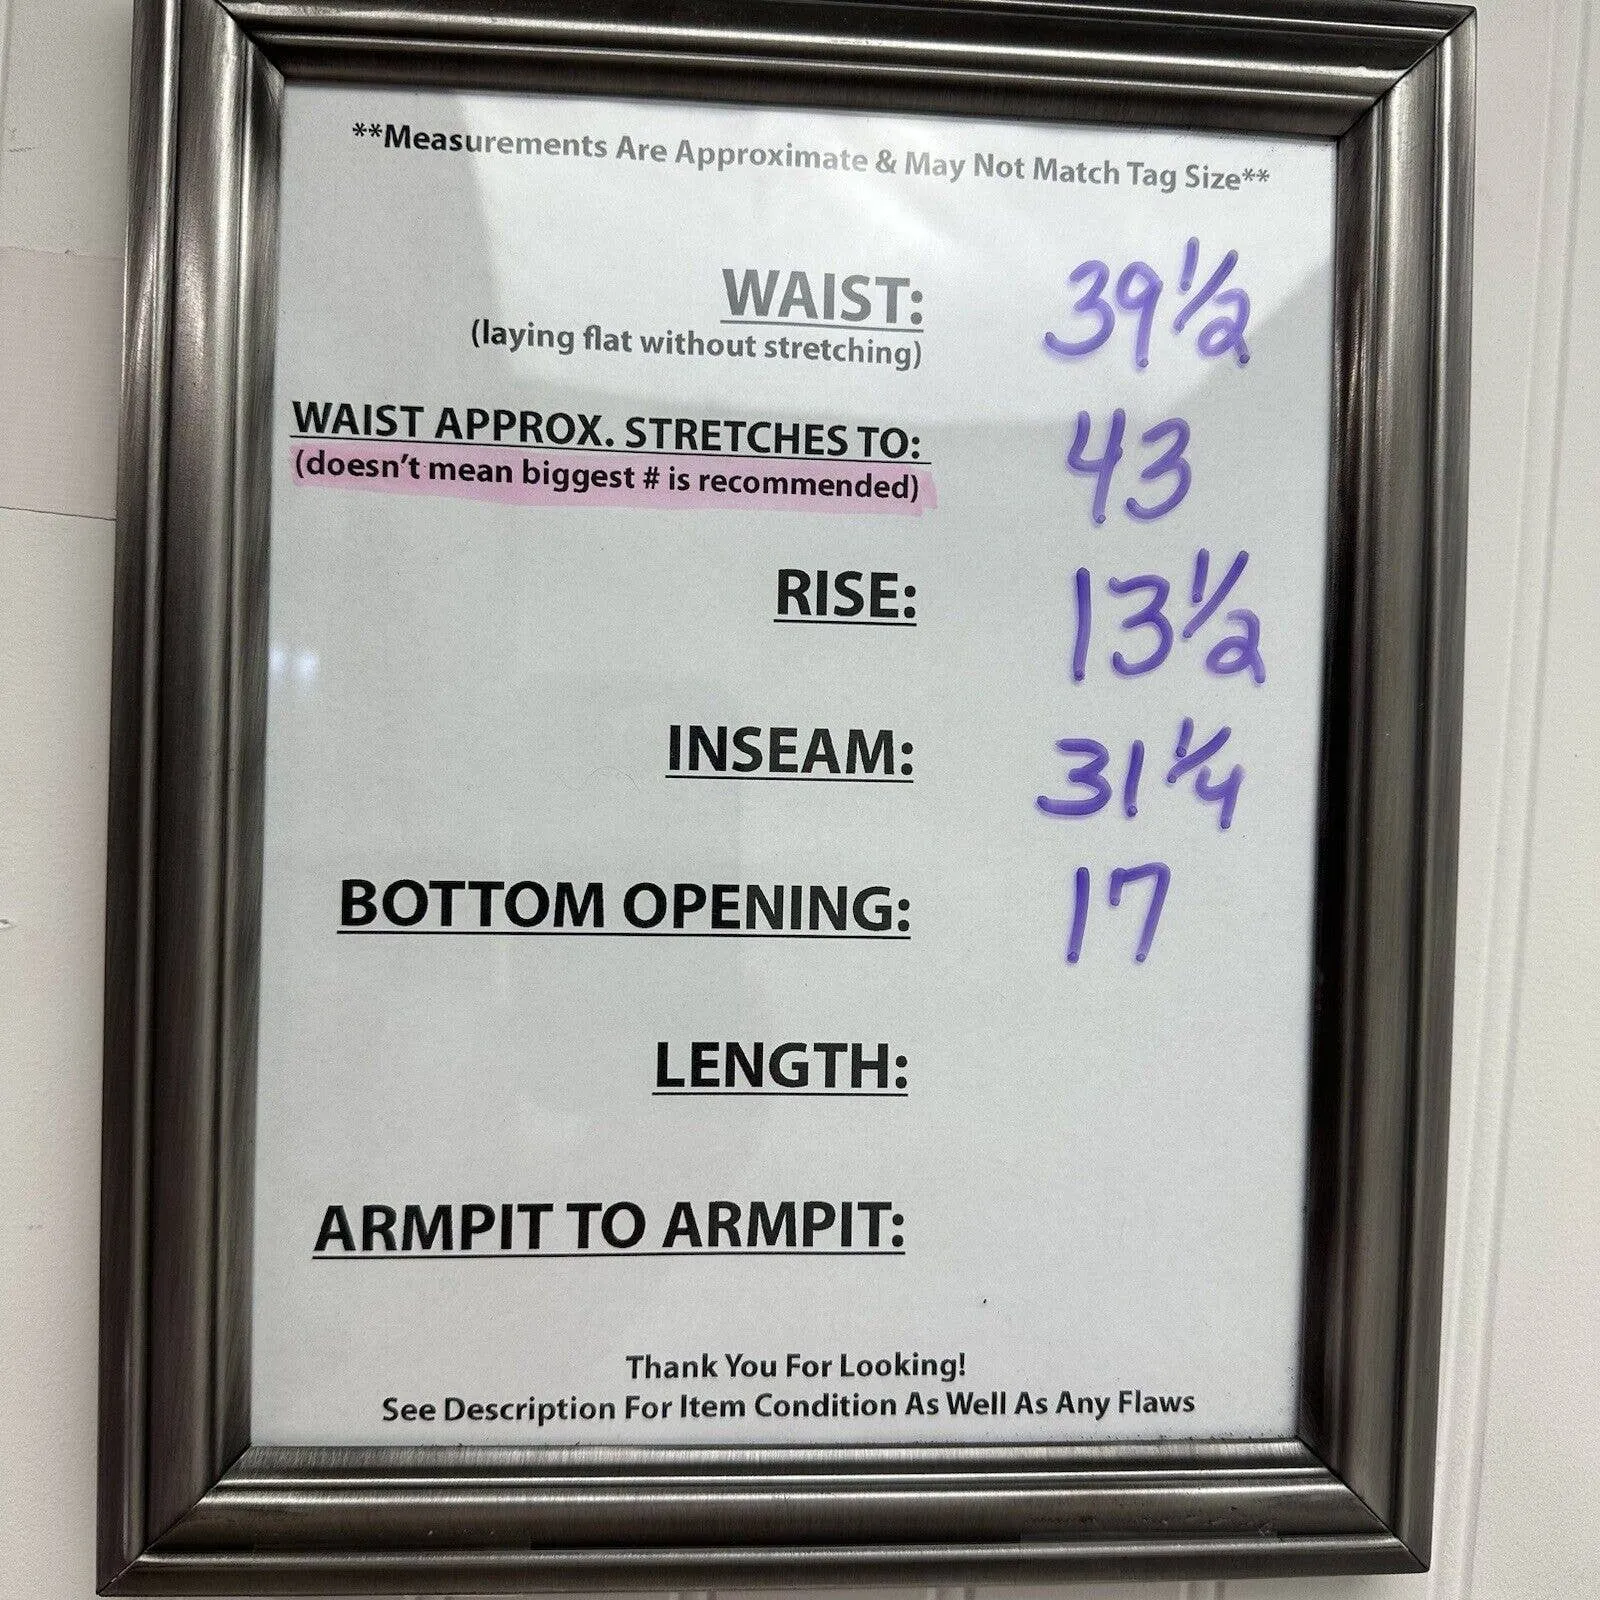 **Measurements Are Approximate & May Not Match Tag Size**
WAIST: 39 1/2
(laying flat without stretching)
WAIST APPROX. STRETCHES TO: 43
(doesn't mean biggest # is recommended)
RISE: 13 1/2
INSEAM: 31 1/4
BOTTOM OPENING: 17
LENGTH:
ARMPIT TO ARMPIT:
Thank You For Looking!
See Description For Item Condition As Well As Any Flaws